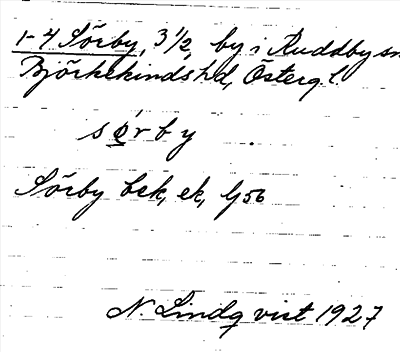 1-4 Sörby, 3 1/2, by i Ruddby sn
Björkekinds hd, Österg l.
sǫ́rby.
Sörby bek, ek, G 56
N. Lindqvist 1927